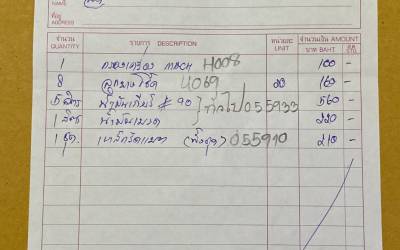 NAME
ที่อยู่
ADDRESS
จำนวน รายการ DESCRIPTION หน่วยละ จำนวนเงิน AMOUNT
QUANTITY UNIT บาท BAHT
1 กรองเครื่อง H008 100 -
8 ลูกยางโช๊ค U069 20 160 -
5 ลิตร น้ำมันเกียร์ # 90 } ทั่วไป 055933 560 -
1 ลิตร น้ำมันเบรค
1 ชุด เหล็กรัดแหนบ 055910 210 -